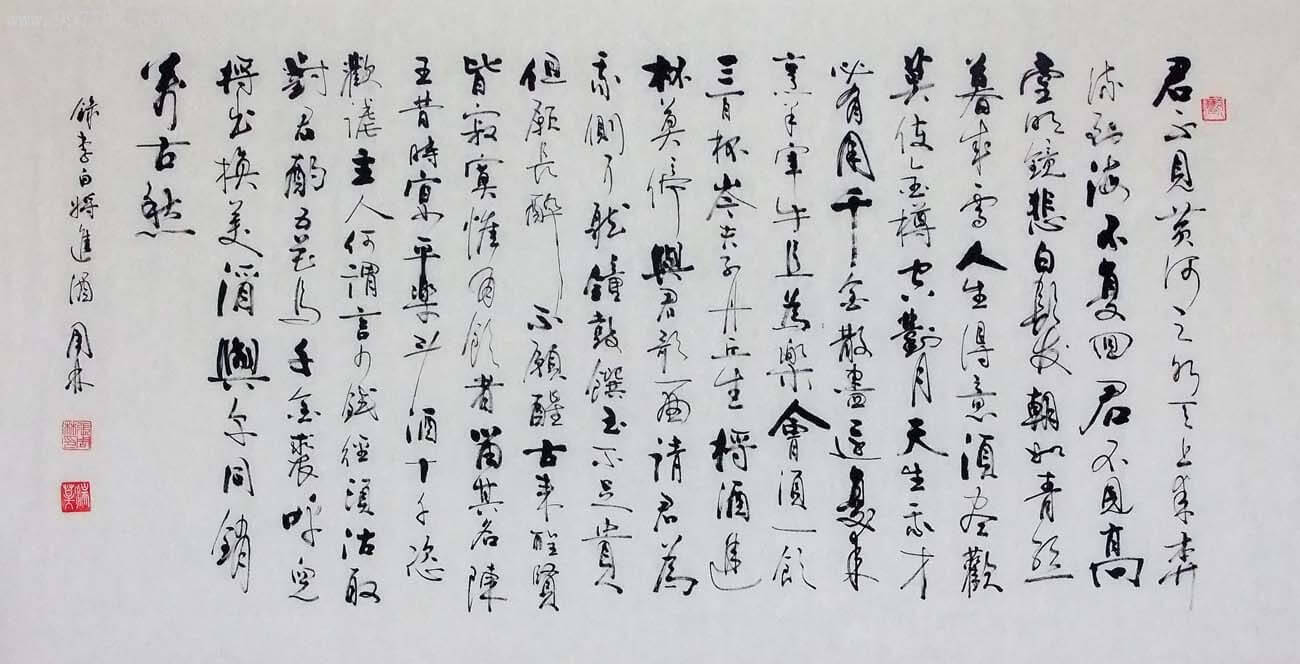 君不見黃河之水天上來奔
流到海不复回君不見高
堂明鏡悲白髮朝如青絲
暮成雪人生得意須盡歡
莫使金樽空對月天生我才
必有用千金散盡還复來
烹羊宰牛且為樂會須一飲
三百杯岑夫子丹丘生將酒進
杯莫停與君歌一曲請君為
我側耳聽鐘鼓饌玉不足貴
但願長醉不願醒古來聖賢
皆寂寞惟有飲者留其名陳
王昔時宴平樂斗酒十千恣
歡謔主人何謂言少錢徑須沽取
對君酌五花馬千金裘呼兒
將出換美酒與爾同銷
萬古愁
錄李白將進酒 周林